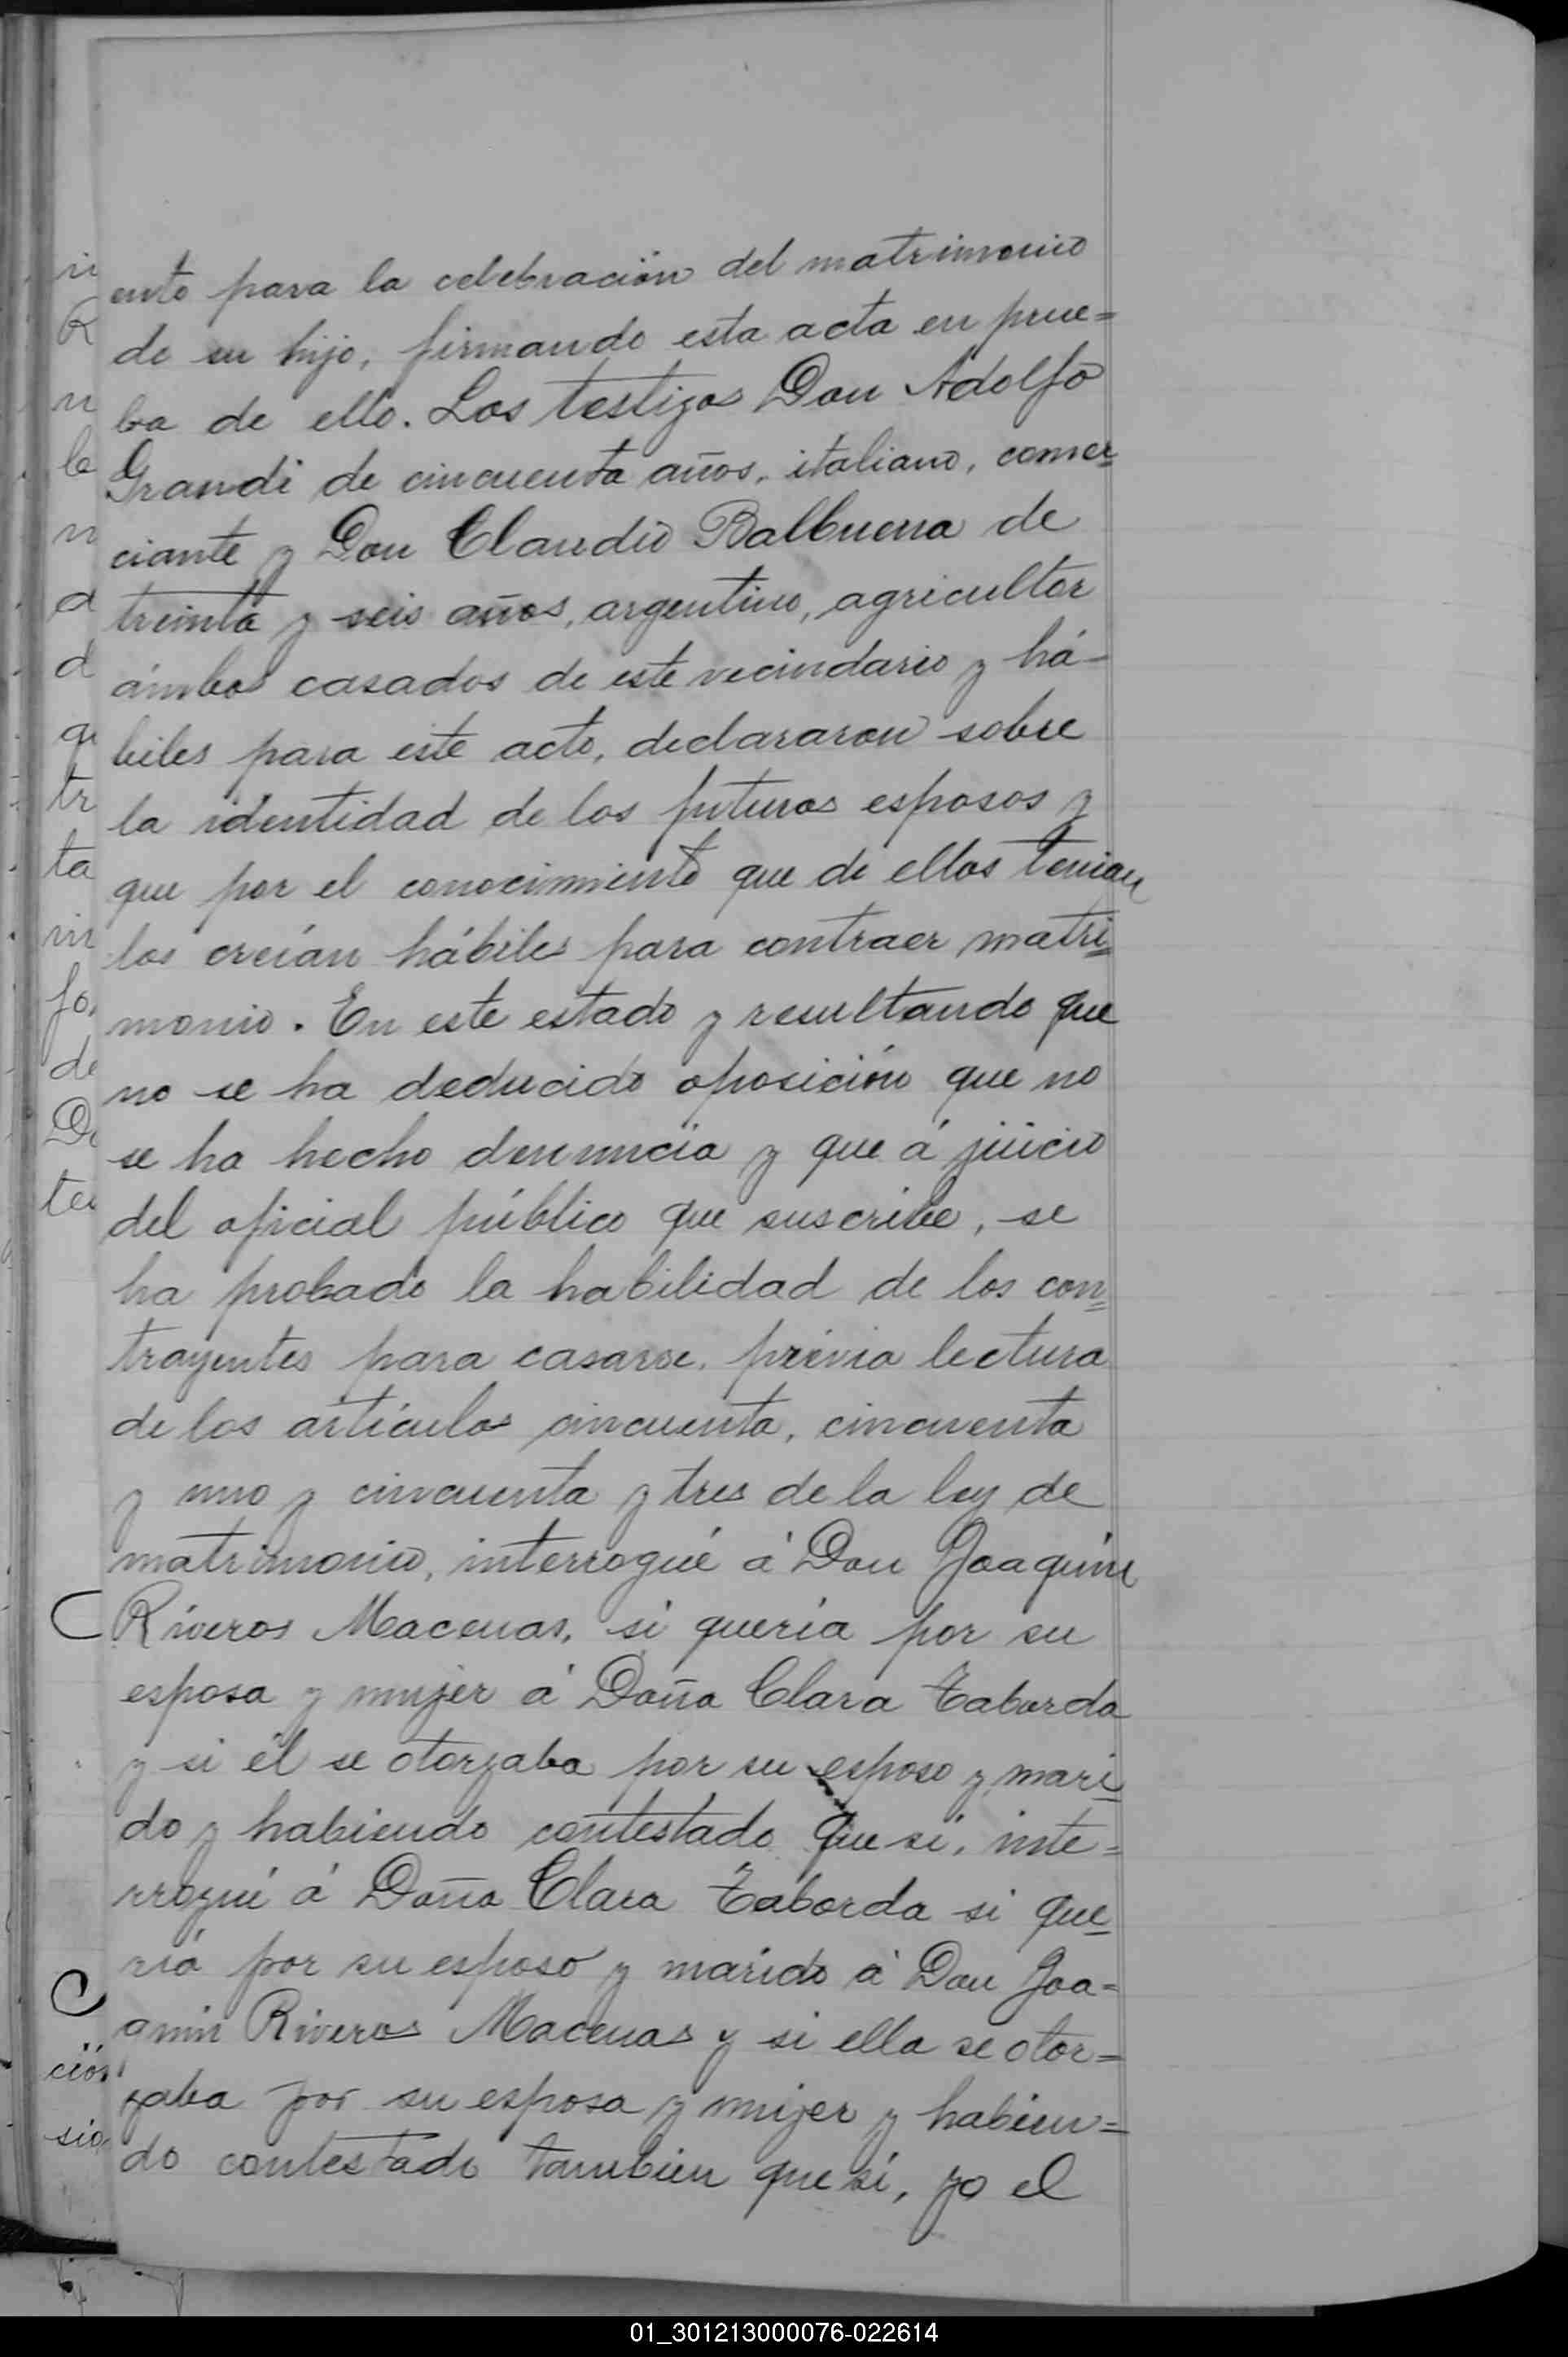 ento para la celebración del matrimonio
de su hijo, firmando esta acta en prue=
ba de ello. Los testigos Don Adolfo
Grandi de cincuenta años, italiano, comer=
ciante y Don Claudio Balbuena de
treinta y seis años, argentino, agricultor
ámbos casados de este vecindario y há-
biles para este acto, declararon sobre
la identidad de los futuros esposos y
que por el conocimiento que de ellos tenian
los creían hábiles para contraer matri=
monio. En este estado y resultando que
no se ha deducido oposición que no
se ha hecho denuncia y que á juicio
del oficial público que suscribe, se
ha probado la habilidad de los con=
trayentes para casarse, prévia lectura
de los artículos cincuenta, cincuenta
y uno y cincuenta y tres de la ley de
matrimonio, interrogué á Don Joaquin
Riveros Macenas, si quería por su
esposa y mujer á Doña Clara Taborda
y si él se otorgaba por su esposo y mari=
do y habiendo contestado que si, inte=
rrogué á Doña Clara Taborda si que=
ría por su esposo y marido á Don Joa=
quin Riveros Macenas y si ella se otor=
gaba por su esposa y mujer y habien=
do contestado tambien que sí, yo el
01_301213000076-022614